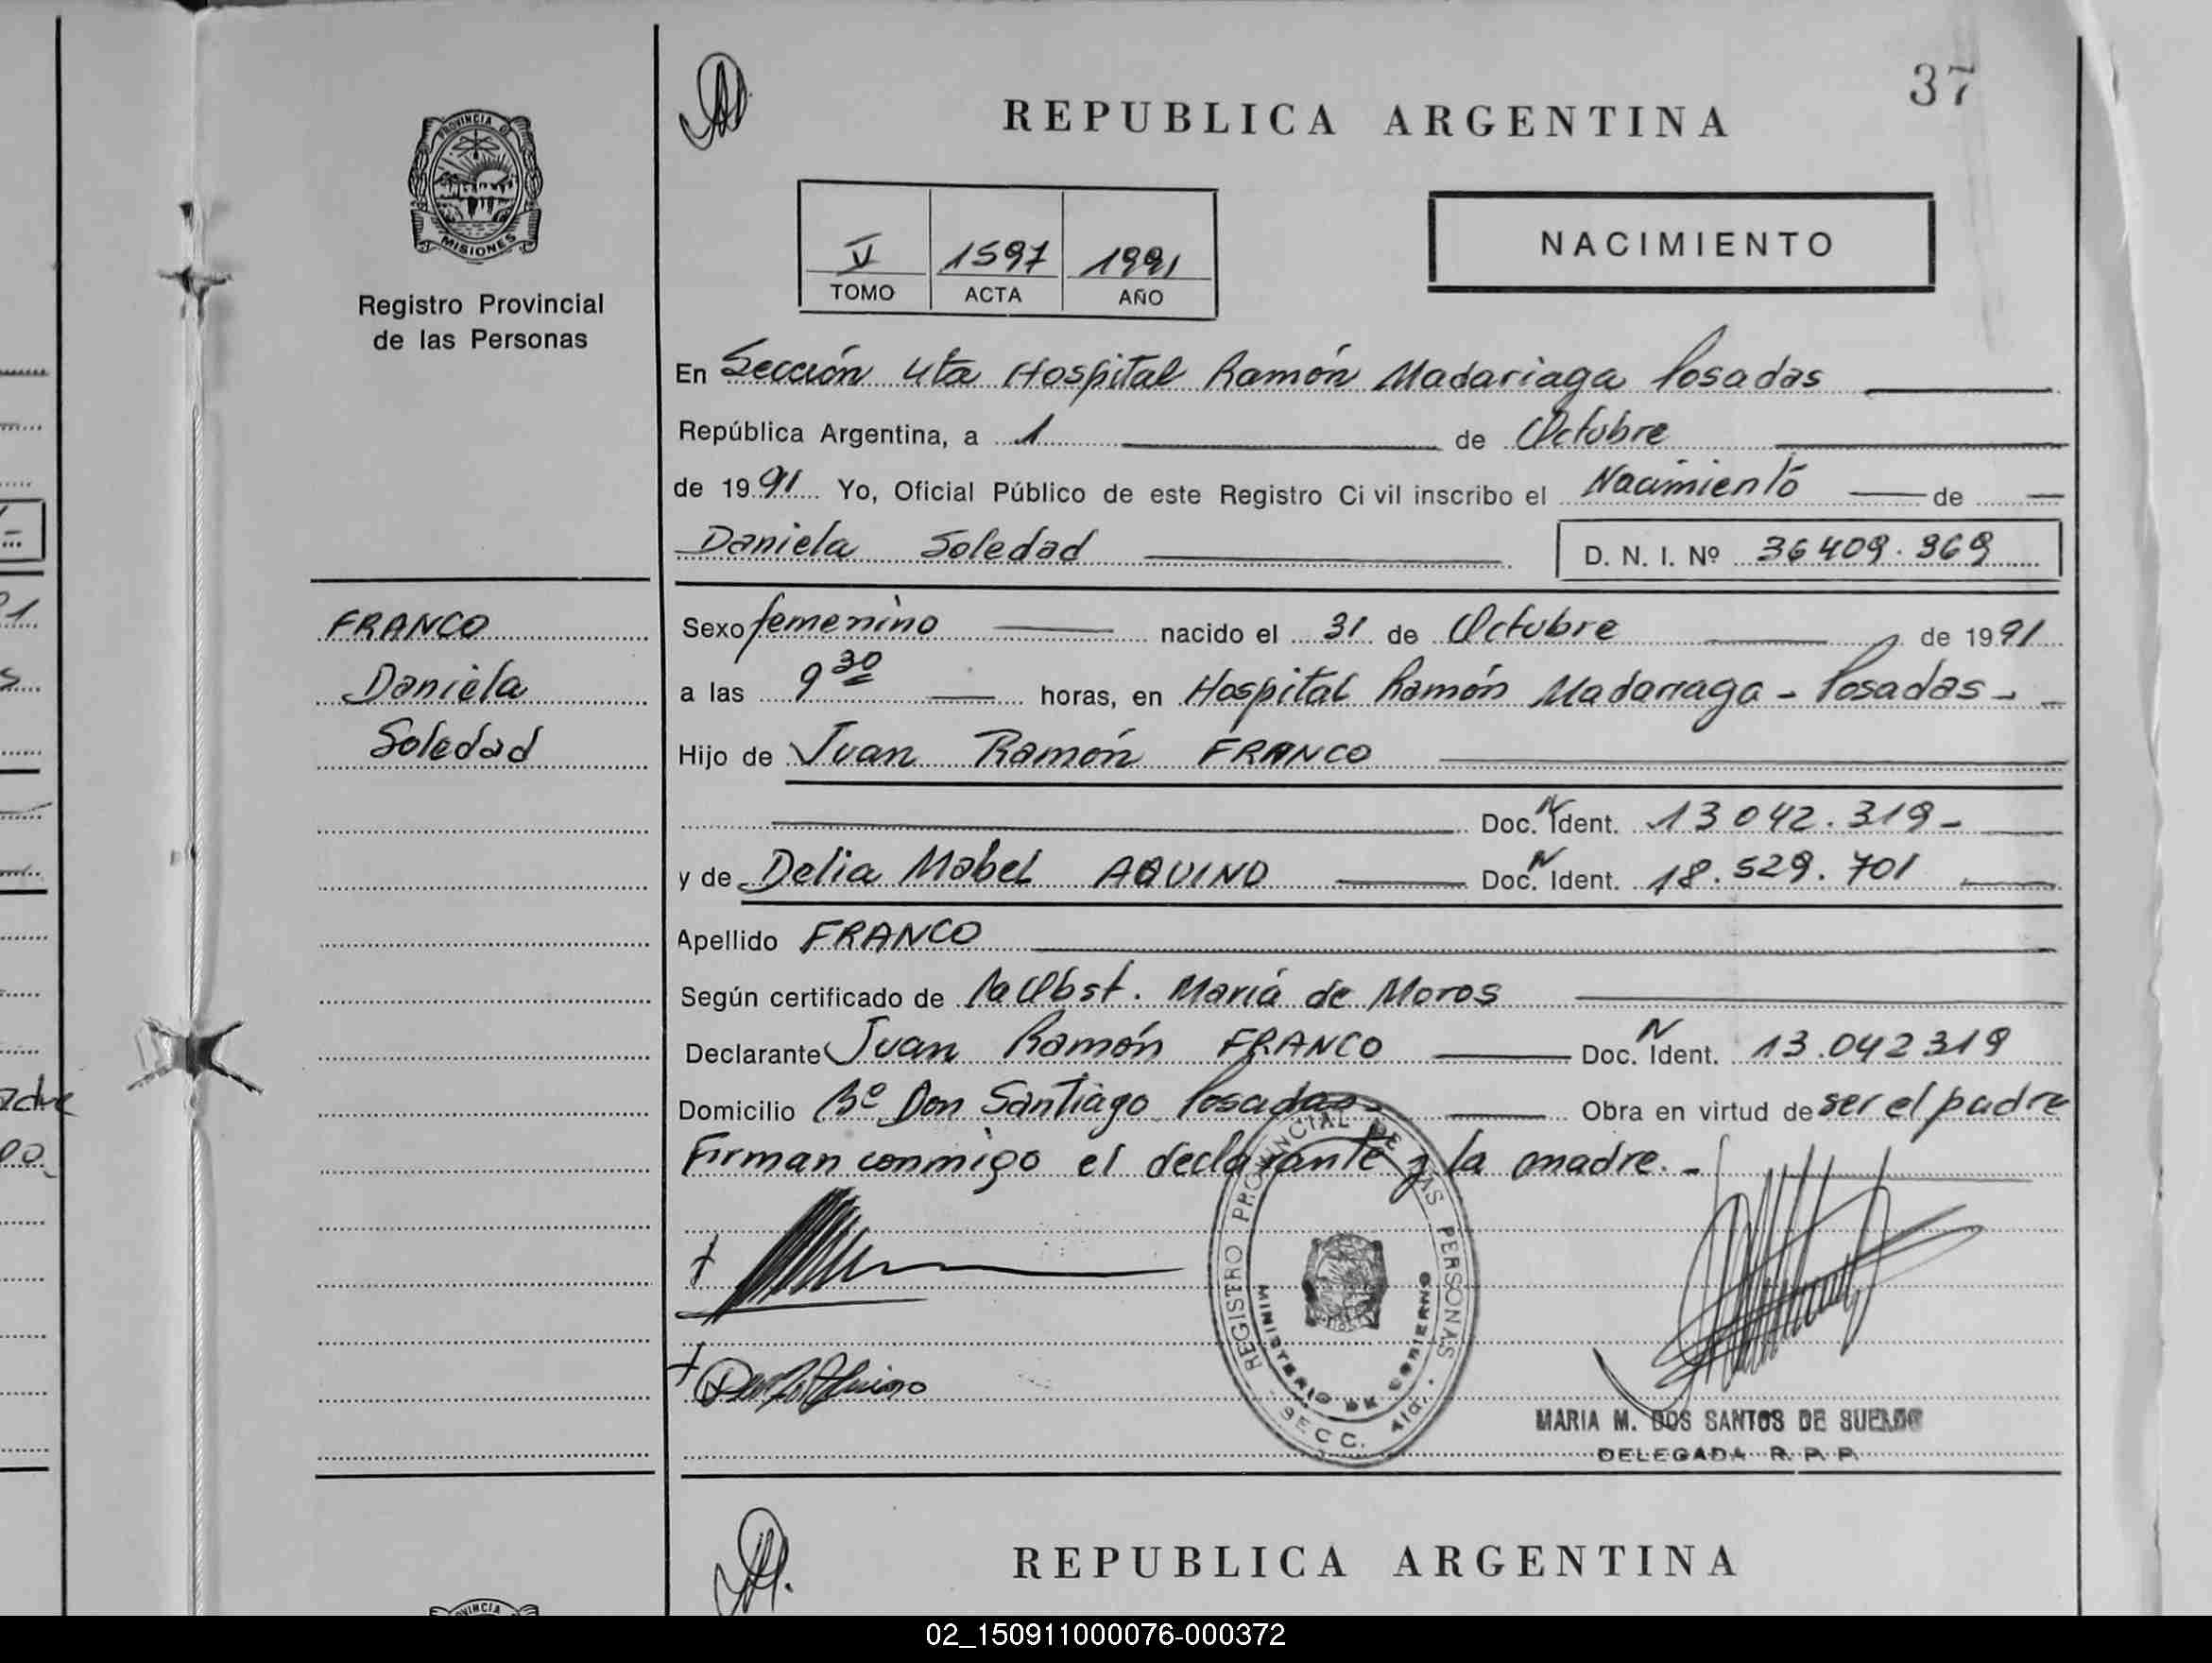 37
REPUBLICA ARGENTINA
PROVINCIA DE
MISIONES
Registro Provincial
de las Personas
V 1597 1991
TOMO ACTA AÑO
NACIMIENTO
En Sección 4ta Hospital Ramón Madariaga Posadas
República Argentina, a 1 de Octubre
de 1991 Yo, Oficial Público de este Registro Ci vil inscribo el Nacimiento de
Daniela Soledad D. N. I. Nº 36409.969
FRANCO
Daniela
Soledad
Sexo femenino nacido el 31 de Octubre de 1991
a las 9 30 horas, en Hospital Ramón Madariaga - Posadas -
Hijo de Juan Ramón FRANCO
Doc. N Ident. 13042.319-
y de Delia Mabel AQUINO Doc. N Ident. 18.529.701
Apellido FRANCO
Según certificado de la Obst. María de Moros
Declarante Juan Ramón FRANCO Doc. N Ident. 13.042319
Domicilio Bº Don Santiago Posadas- Obra en virtud de ser el padre
Firman conmigo el declarante y la madre.-
REGISTRO PROVINCIAL DE LAS PERSONAS
MINISTERIO DE GOBIERNO
SECC. 4ta.
MARIA M. DOS SANTOS DE
DELEGADA R. P. P.
REPUBLICA ARGENTINA
02_150911000076-000372